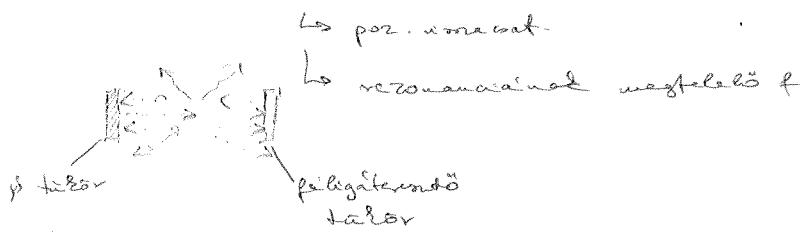 ↳ poz. visszacsat.
↳ rezonanciának megfelelő f
tükör
féligáteresztő
tükör